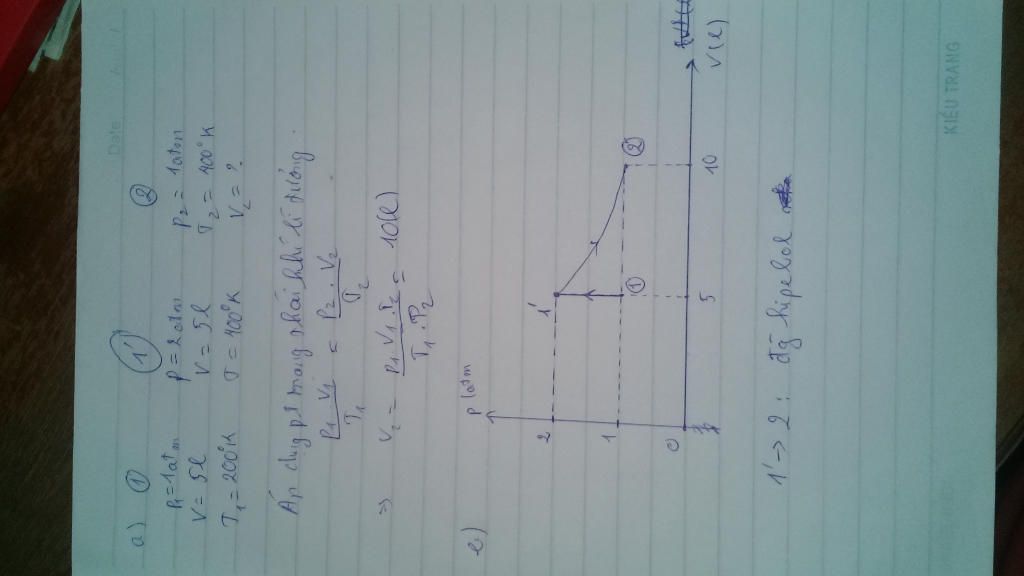 Date
a) ① ①' ②
P₁ = 1atm P = 2atm P₂ = 1atm
V = 5l V = 5l T₂ = 400°K
T₁ = 200°K T = 400°K V₂ = ?
Áp dụng pt trạng thái khí lí tưởng.
P₁ . V₁ / T₁ = P₂ . V₂ / T₂
=> V₂ = P₁ V₁ . T₂ / T₁ . P₂ = 10(l)
P (atm
2 1'
1 ① ②
0 5 10 V(l)
1' -> 2 : đg hipebol
KIỀU TRANG